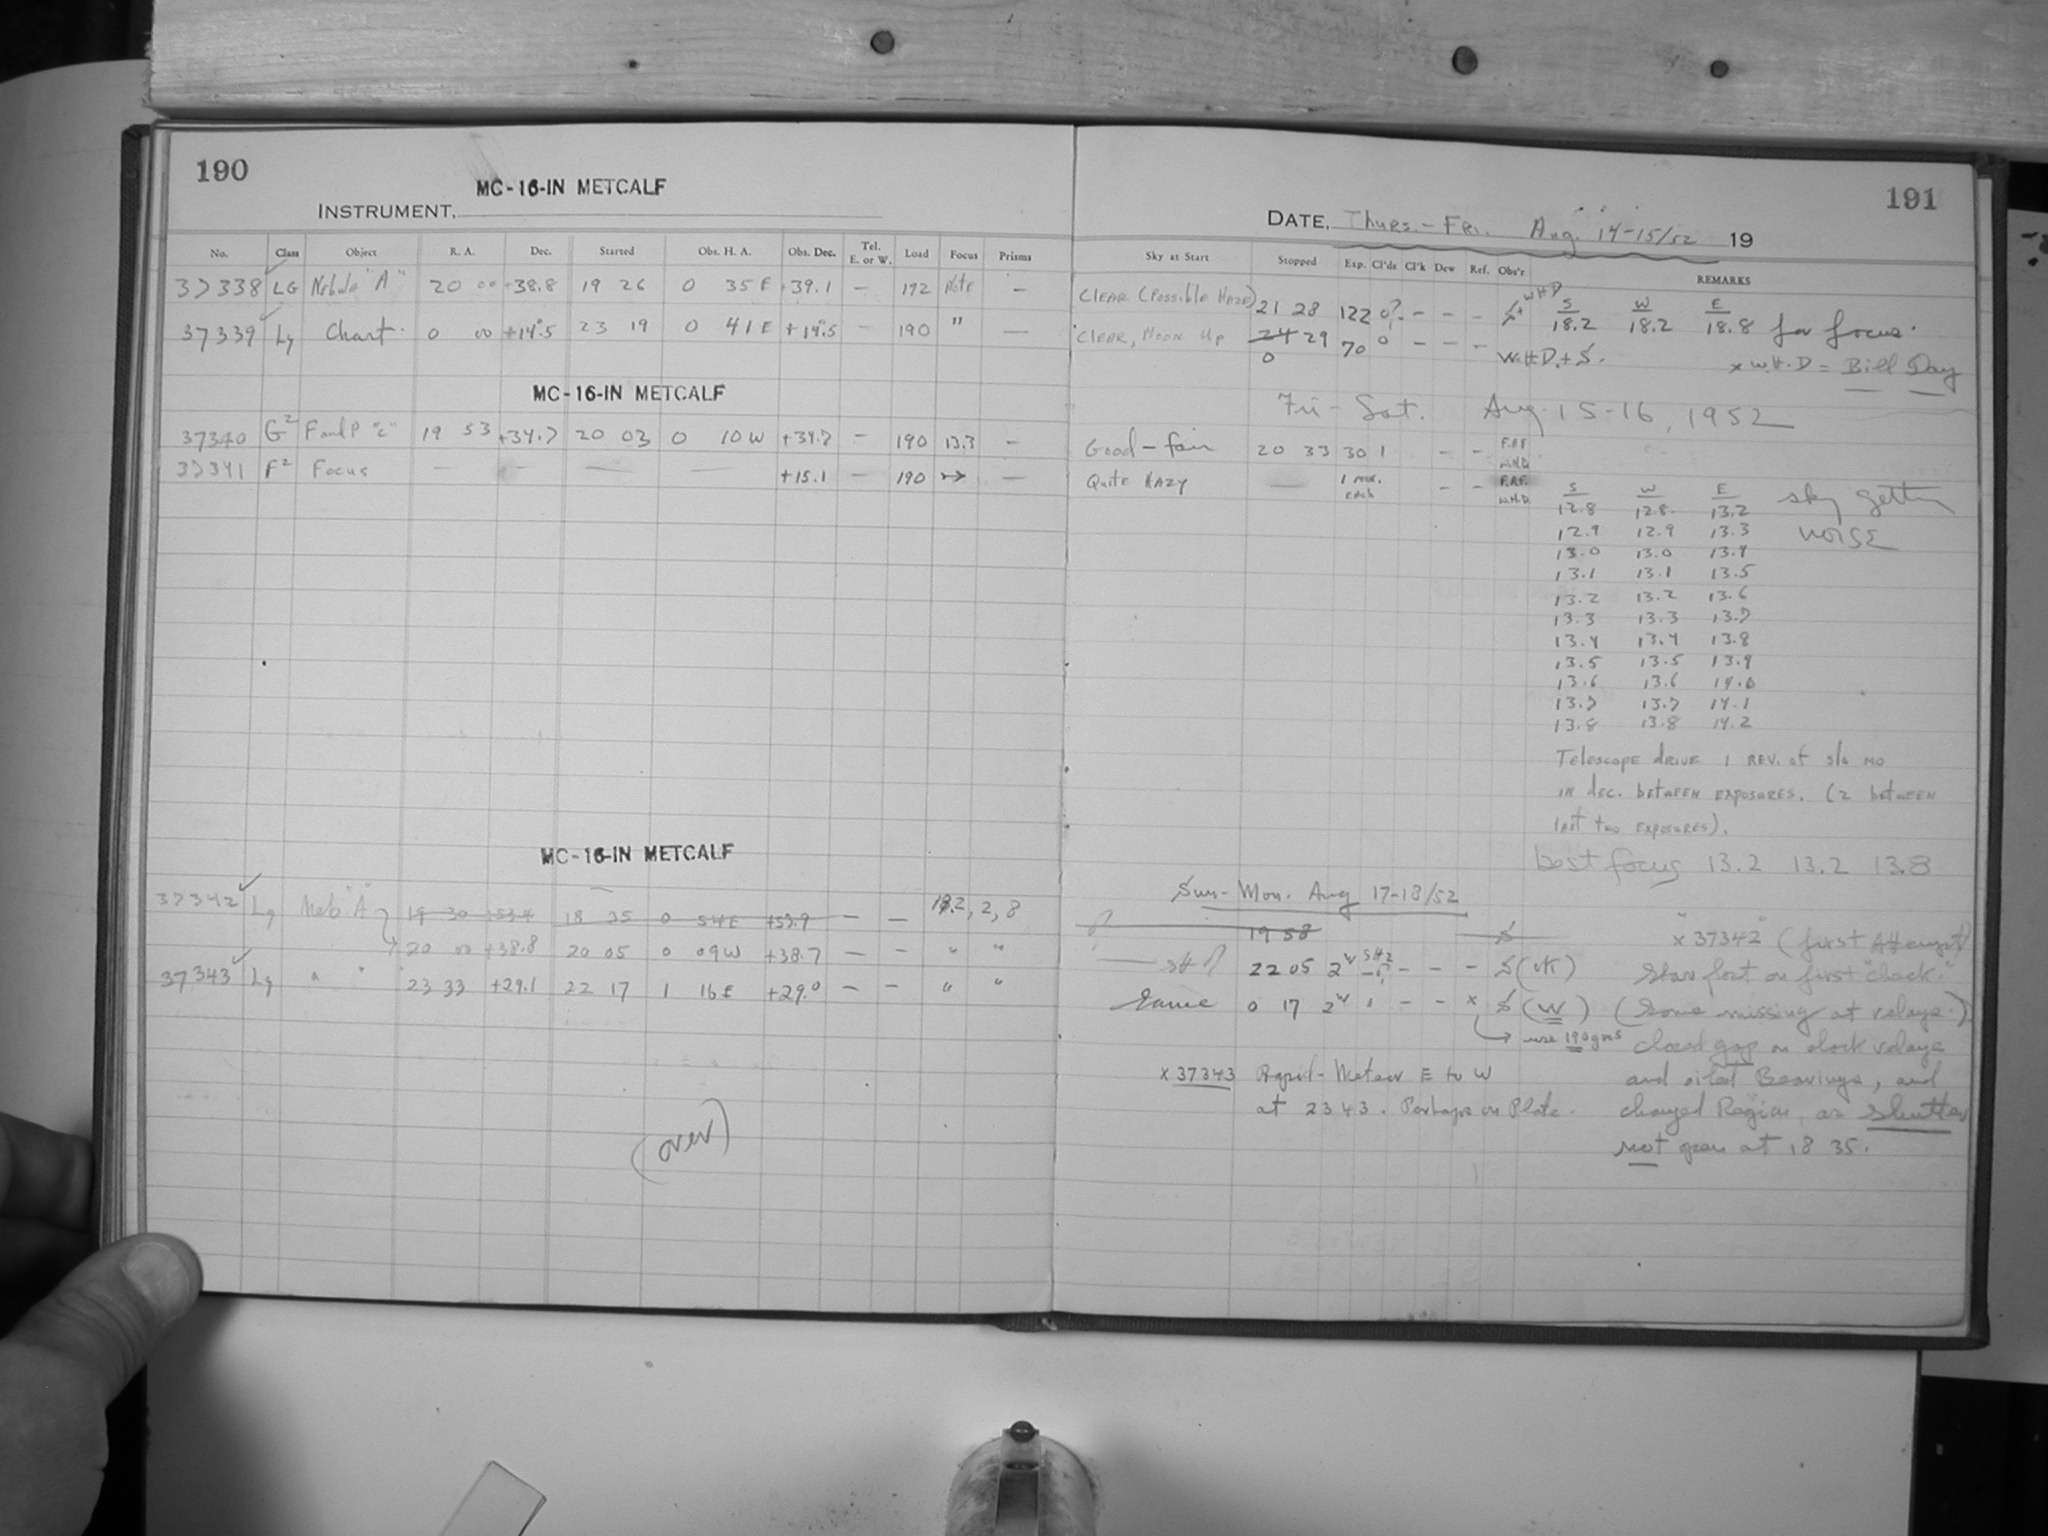 190
MC-16-IN METCALF
INSTRUMENT,
No. Class Object R. A. Dec. Started Obs. H. A. Obs. Dec. Tel. E. or W. Load Focus Prisms
37338 LG Nebula "A" 20 00 +38.8 19 26 0 35 E +39.1 — 192 Note —
37339 Lg Chart 0 00 +14.5 23 19 0 41 E +14.5 — 190 " —
MC-16-IN METCALF
37340 G2 F and P "C" 19 53 +34.7 20 03 0 10 W +34.7 — 190 13.3 —
37341 F2 Focus — — — — +15.1 — 190 → —
MC-16-IN METCALF
37342 Lg Neb. "A" 19 30 +53.4 18 35 0 54 E +53.9 — — 18.2, 2, 8
20 00 +38.8 20 05 0 09 W +38.7 — — " "
37343 Lg " " 23 33 +29.1 22 17 1 16 E +29.0 — — " "
(over)
191
DATE, Thurs. - Fri. Aug. 14-15/52 19
Sky at Start Stopped Exp. Cl'ds Cl'k Dew Ref. Obs'r REMARKS
CLEAR (Possible HAZE) 21 28 122 0? - - - S+ WHD S W E
18.2 18.2 18.8 for focus.
CLEAR, Moon Up 24 29 70 0 - - - W.H.D. + S.
0
x W.H.D = Bill Day
Fri - Sat. Aug. 15-16, 1952
Good - fair 20 33 30 1 - - F.A.F. W.H.D.
Quite HAZY — 1 min. each - - F.A.F. W.H.D.
S W E
12.8 12.8 13.2 sky getting
12.9 12.9 13.3 worse
13.0 13.0 13.4
13.1 13.1 13.5
13.2 13.2 13.6
13.3 13.3 13.7
13.4 13.4 13.8
13.5 13.5 13.9
13.6 13.6 14.0
13.7 13.7 14.1
13.8 13.8 14.2
Telescope drive 1 REV. of slo mo
in dec. between exposures. (2 between
last two exposures).
best focus 13.2 13.2 13.8
Sun - Mon. Aug 17-18/52
19 58 S
22 05 2 - - - S (W)
Same 0 17 2 - - x S (W)
use 190 gms
x 37343 Rapid - Meteor E to W
at 23 43. Perhaps on Plate.
x "37342" (first Attempt)
Star lost on first "clock."
(Some missing at relays.)
closed gap on clock relays
and oiled Bearings, and
changed Region, as Shutter
not open at 18 35.